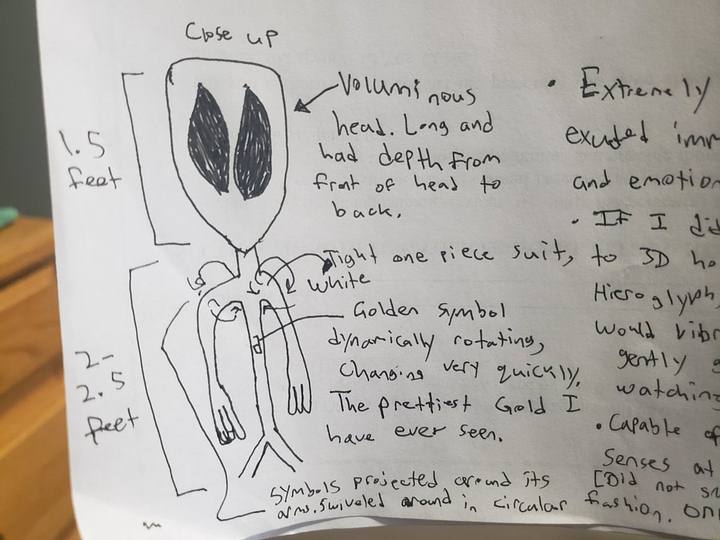 Close up
1.5
feet
Voluminous
head. Long and
had depth from
front of head to
back.
Tight one piece suit,
White
Golden symbol
dynamically rotating,
Changing very quickly.
The prettiest Gold I
have ever seen.
2-
2.5
feet
Symbols projected around its
arms. Swiveled around in circular fashion.
• Extremely
exuded
and emotion
• If I did
to 3D
Hieroglyph
would
gently
watching
• Capable of
Senses at
[Did not